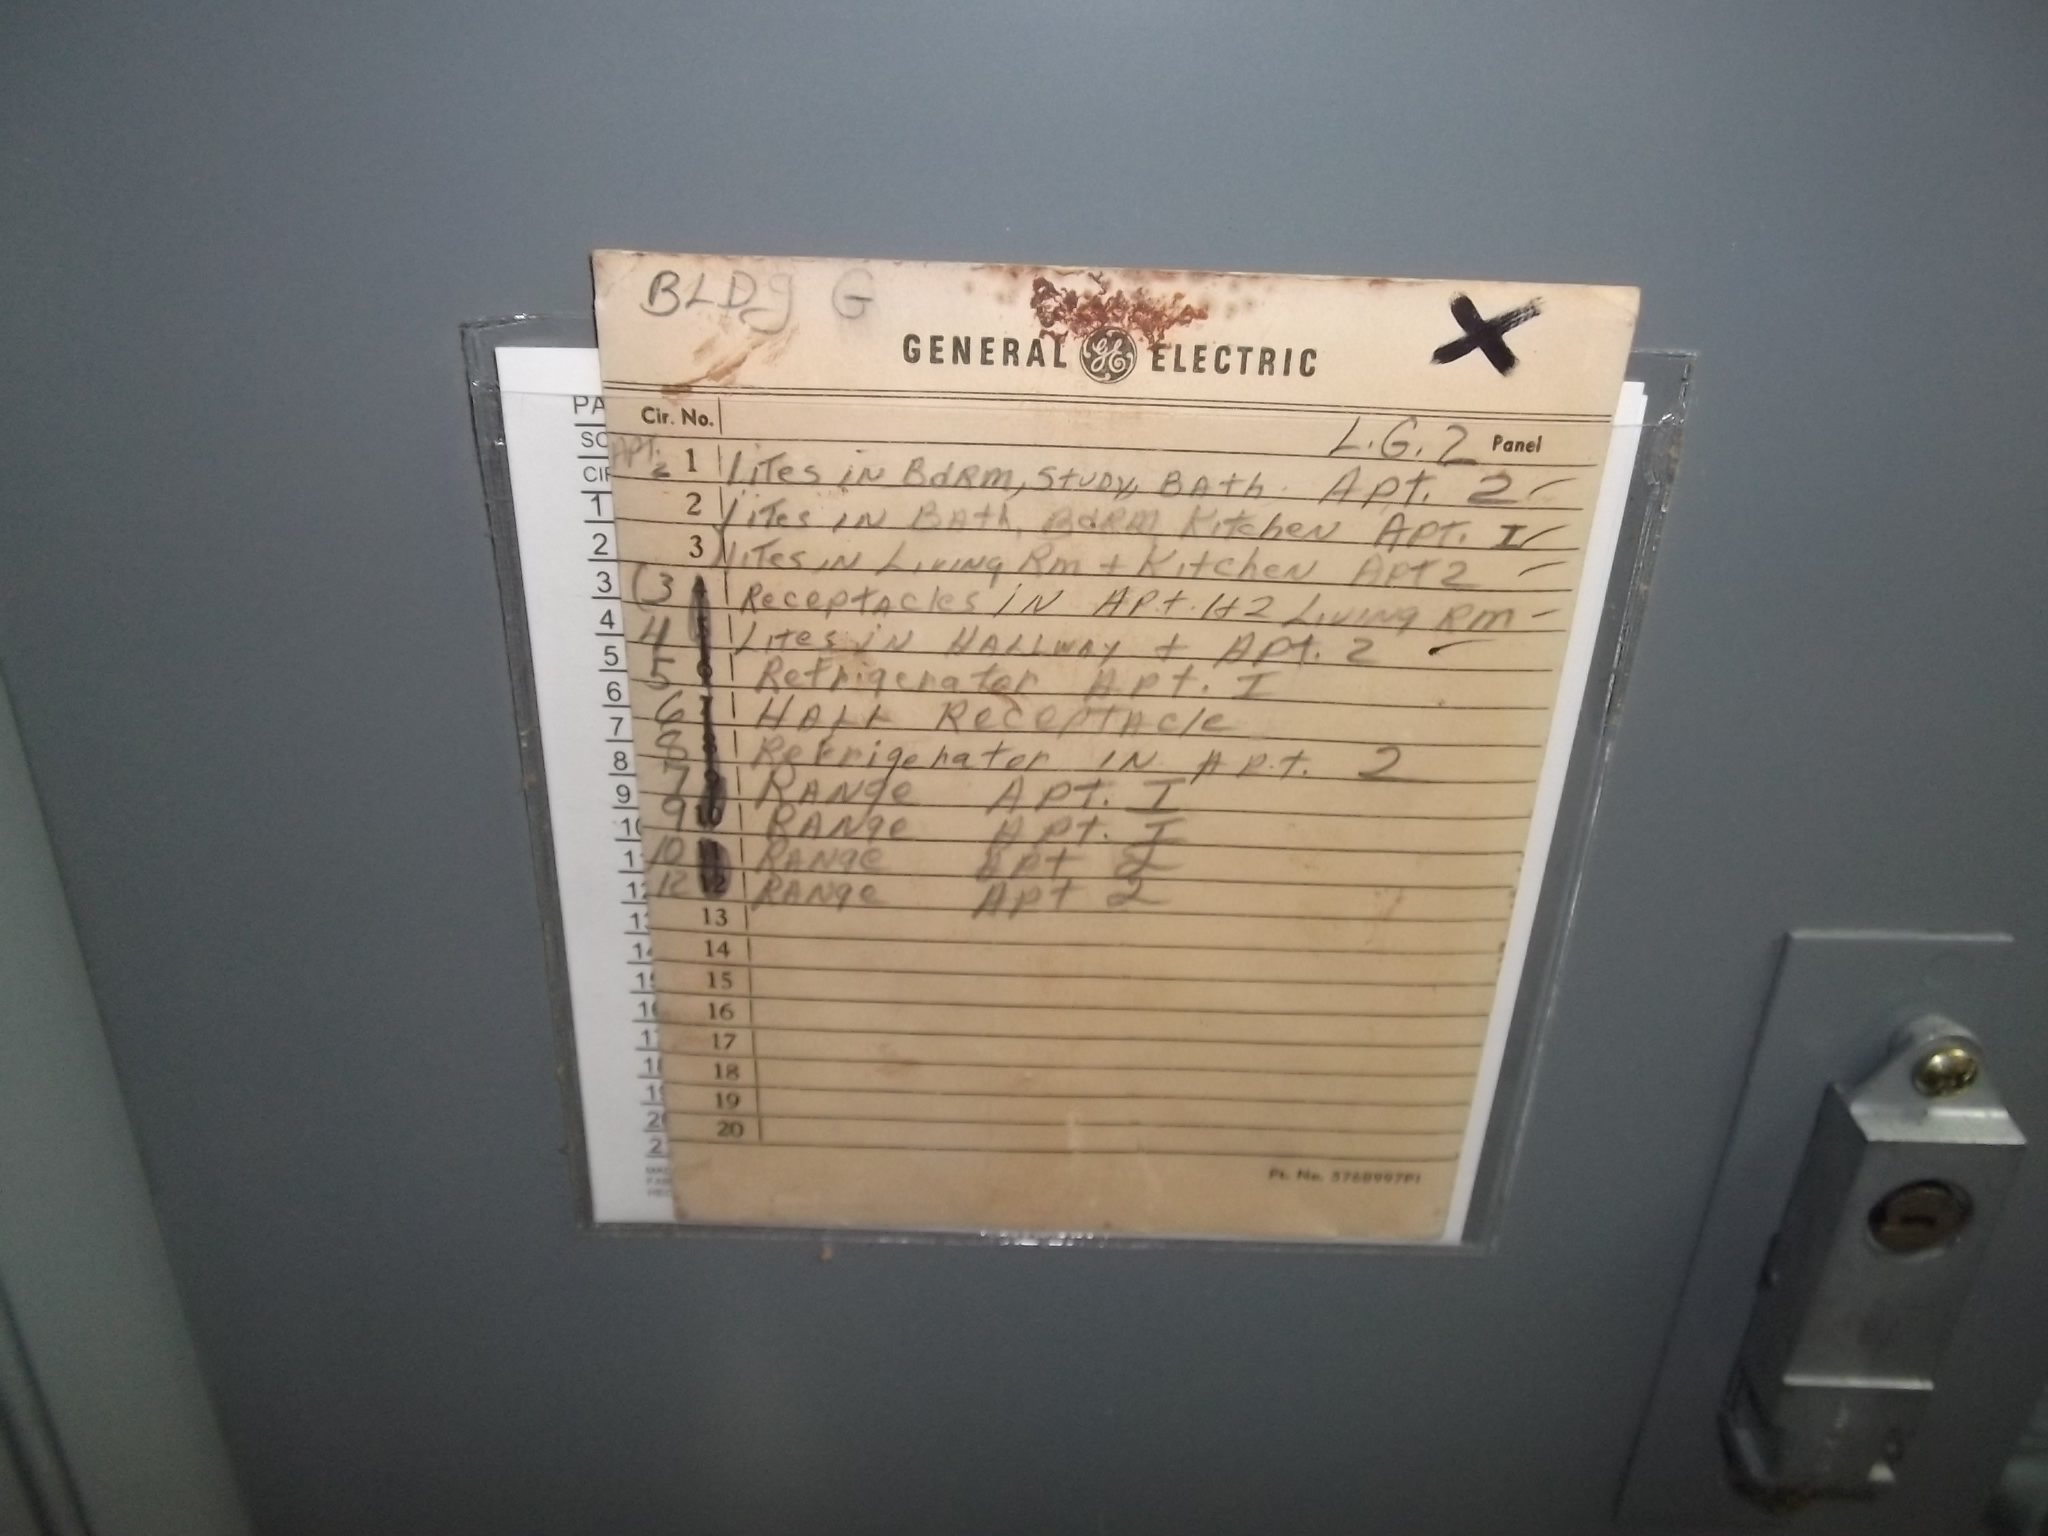 BLDg G
GENERAL GE ELECTRIC
PA
Cir. No.
L.G.2 Panel
SC
APT. 2
CIR
1 Lites in BdRm, Study, Bath Apt. 2
1
2 Lites in Bath, BdRM Kitchen Apt. I
2
3 Lites in Living Rm + Kitchen Apt 2
3
(3 Receptacles in Apt. 1+2 Living Rm
4
4 Lites in HALLWAY + Apt. 2
5
5 Refrigerator Apt. I
6
6 HALL Receptacle
7
8 Refrigerator IN Apt. 2
8
7 RANge Apt. I
9
9 10 RANge Apt. I
10
10 RANge Apt 2
11
12 12 RANge Apt 2
12
13
13
14
14
15
15
16
16
17
17
18
18
19
19
20
20
2
Pt. No. 576B997P1